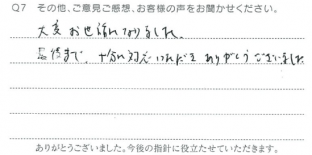 Q7 その他、ご意見ご感想、お客様の声をお聞かせください。
大変お世話になりました。
最後まで、十分な対応いただきありがとうございました
ありがとうございました。今後の指針に役立たせていただきます。